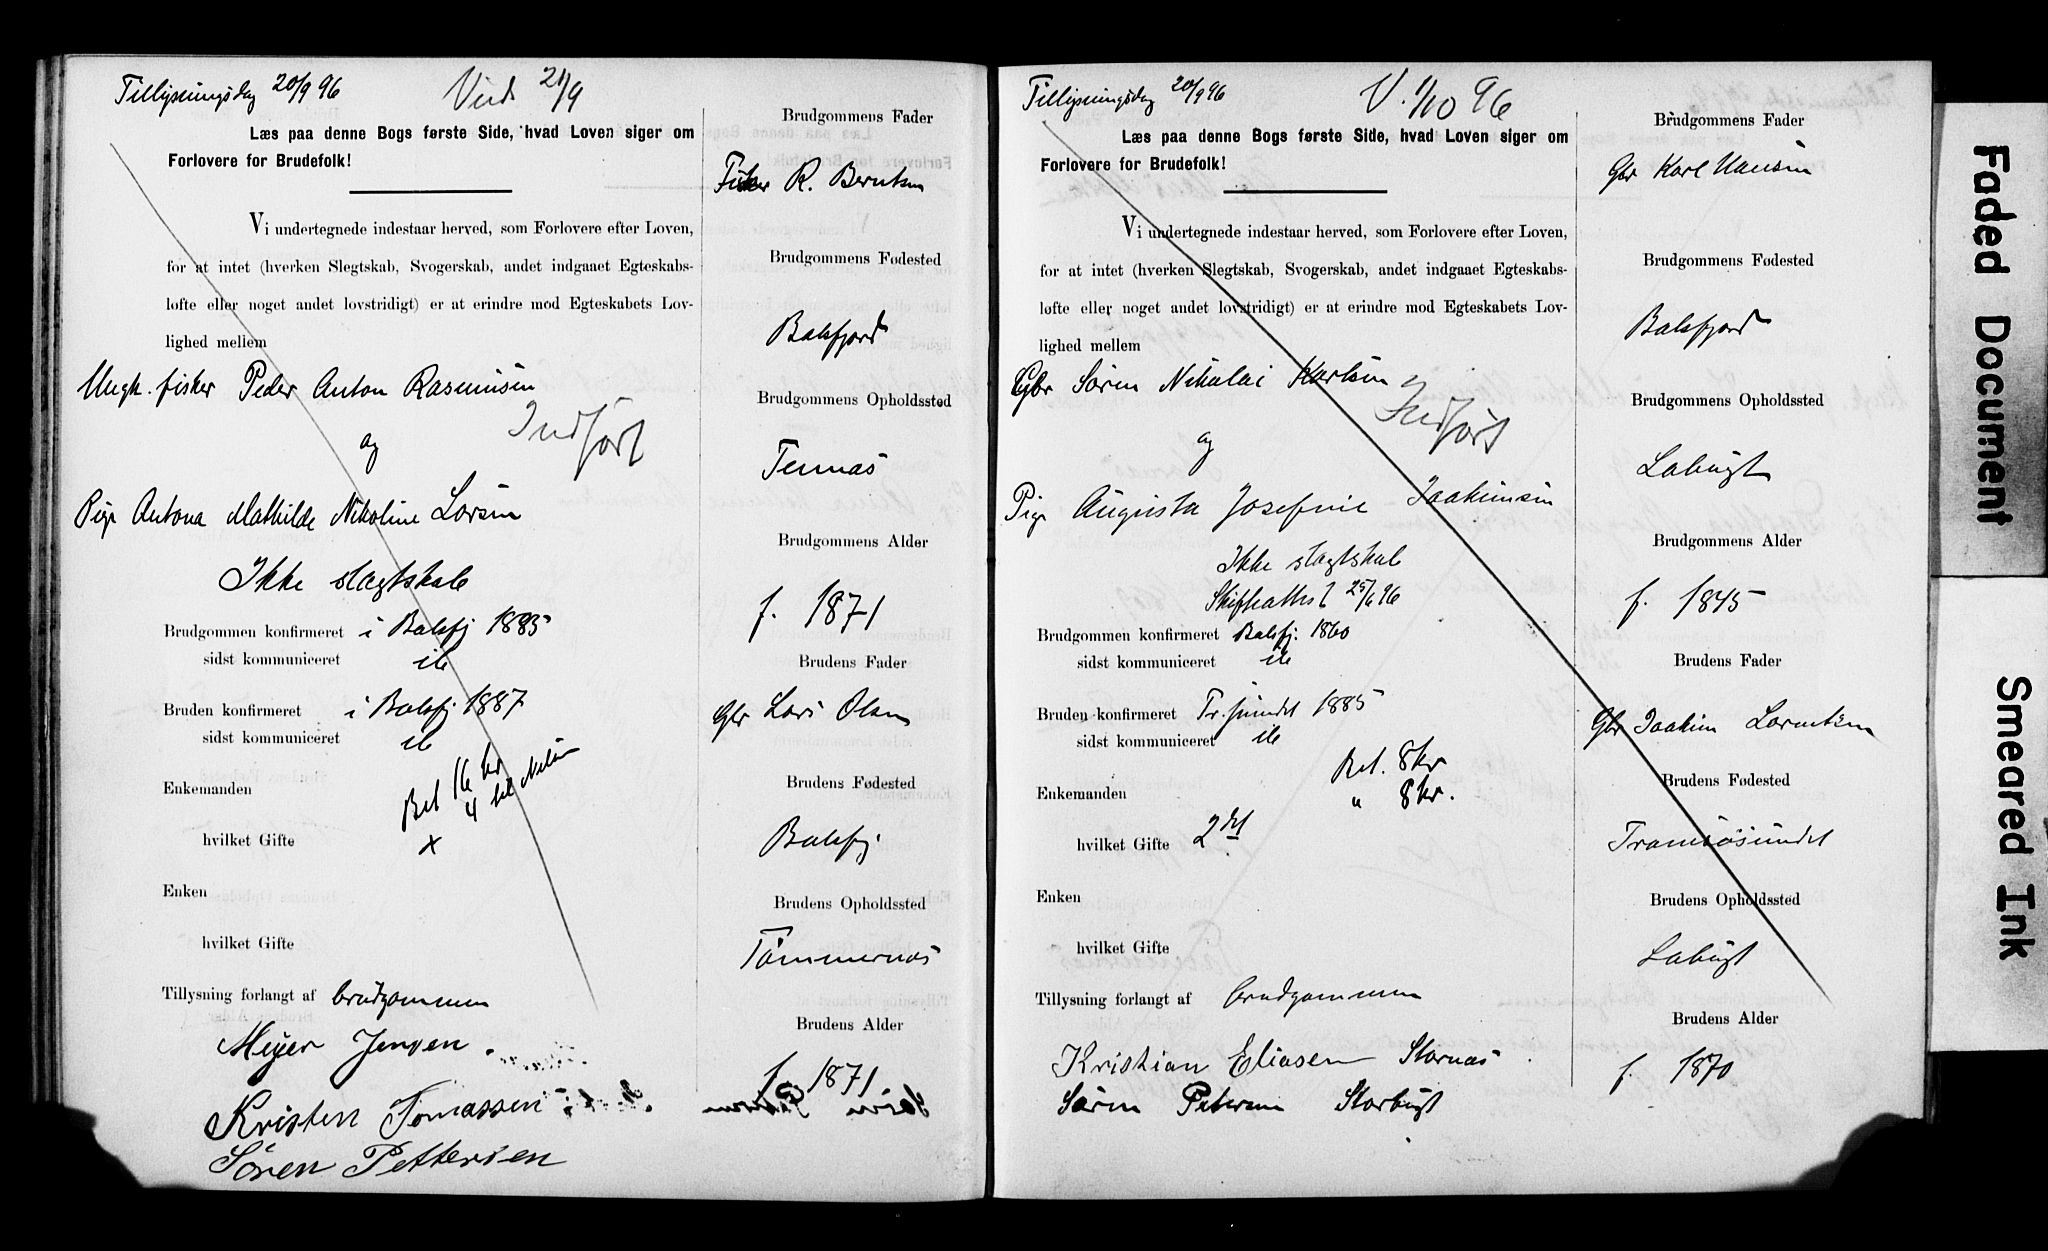 Tillysningsdag 20/9 96 Vied 21/9
Læs paa denne Bogs første Side, hvad Loven siger om
Forlovere for Brudefolk!
Vi undertegnede indestaar herved, som Forlovere efter Loven,
for at intet (hverken Slegtskab, Svogerskab, andet indgaaet Egteskabs-
løfte eller noget andet lovstridigt) er at erindre mod Egteskabets Lov-
lighed mellem
Ungk. fisker Peder Anton Rasmusen
Indført
og
Pige Antona Mathilde Nikoline Larsen
Ikke slægtskab
Brudgommen konfirmeret i Balsfj 1885
sidst kommuniceret ik
Bruden konfirmeret i Balsfj 1887
sidst kommuniceret ik
Bet 16 kr
4 til
x
Enkemanden
hvilket Gifte
Enken
hvilket Gifte
Tillysning forlangt af brudgommen
Meyer Jensen.
Kristen Tomassen
Sören Pettersen
Brudgommens Fader
Fisker R. Berntsen
Brudgommens Fødested
Balsfjord
Brudgommens Opholdssted
Tennæs
Brudgommens Alder
f. 1871
Brudens Fader
Gbr Lars Olsen
Brudens Fødested
Balsfj
Brudens Opholdssted
Tömmernæs
Brudens Alder
f. 1871
Tillysningsdag 20/9 96 V. 1/10 96
Læs paa denne Bogs første Side, hvad Loven siger om
Forlovere for Brudefolk!
Vi undertegnede indestaar herved, som Forlovere efter Loven,
for at intet (hverken Slegtskab, Svogerskab, andet indgaaet Egteskabs-
løfte eller noget andet lovstridigt) er at erindre mod Egteskabets Lov-
lighed mellem
Gbr Sören Nikolai Karlsen
Indført
og
Pige Augusta Josefine Joakimsen
Ikke slægtskab
Skifteattest 25/6 96
Brudgommen konfirmeret Balsfj. 1860
sidst kommuniceret ik
Bruden konfirmeret Tr.sundet 1885
sidst kommuniceret ik
Bet. 8 kr
" 8 kr.
Enkemanden
hvilket Gifte 2det
Enken
hvilket Gifte
Tillysning forlangt af brudgommen
Kristian Eliasen Stornæs
Sören Petersen Storbugt
Brudgommens Fader
Gbr Karl Hansen
Brudgommens Fødested
Balsfjord
Brudgommens Opholdssted
Labugt
Brudgommens Alder
f. 1845
Brudens Fader
Gbr Joakim Lorentsen
Brudens Fødested
Tromsösundet
Brudens Opholdssted
Labugt
Brudens Alder
f. 1870
Faded Document
Smeared Ink